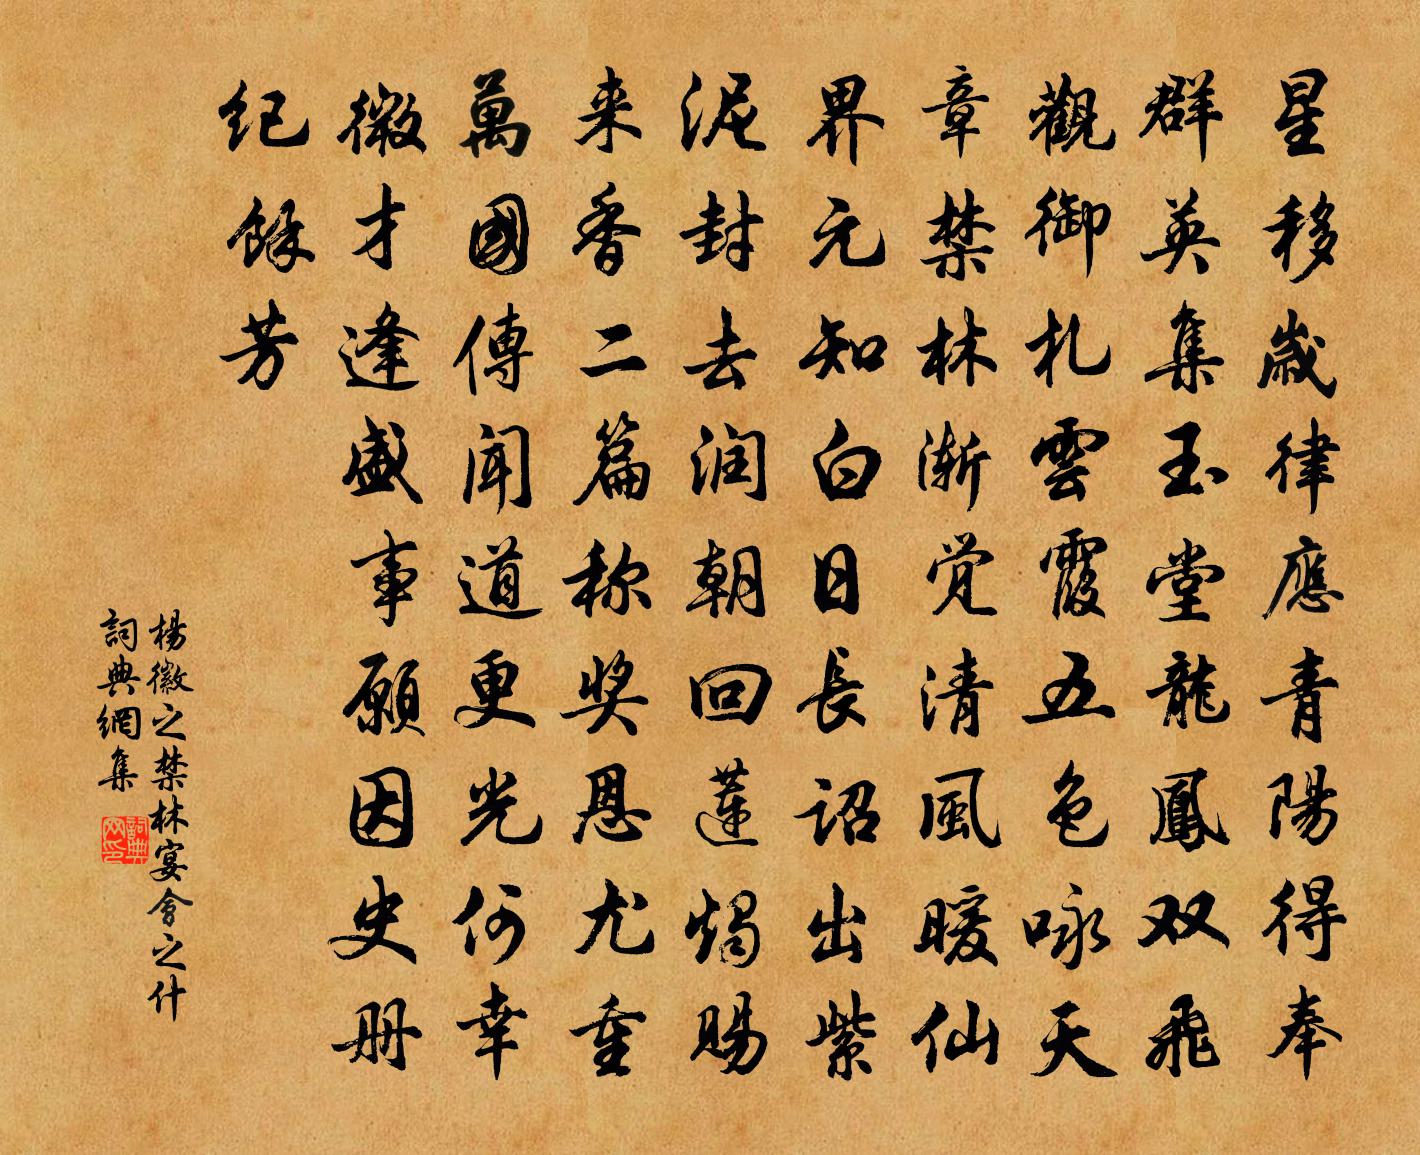 星移歲律應青陽得奉
群英集玉堂龍鳳双飛
觀御札雲霞五色咏天
章禁林渐觉清風暖仙
界元知白日長詔出紫
泥封去润朝回蓮燭賜
来香二篇称奖恩尤重
萬國傳聞道更光何幸
微才逢盛事願因史册
纪餘芳
楊徽之禁林宴會之什
詞典網集
詞典网印